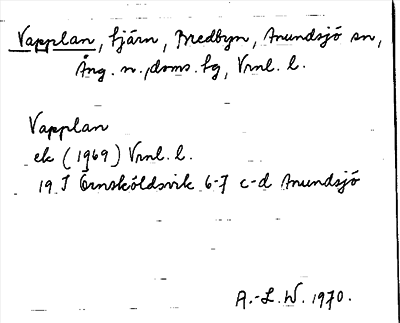 Vapplan, tjärn, Bredbyn, Anundsjö sn,
Ång. n., doms. fg, Vrnl. l.
Vapplan
ek (1969) Vrnl. l.
19 J Örnsköldsvik 6-7 c-d Anundsjö
A.-L. W. 1970.